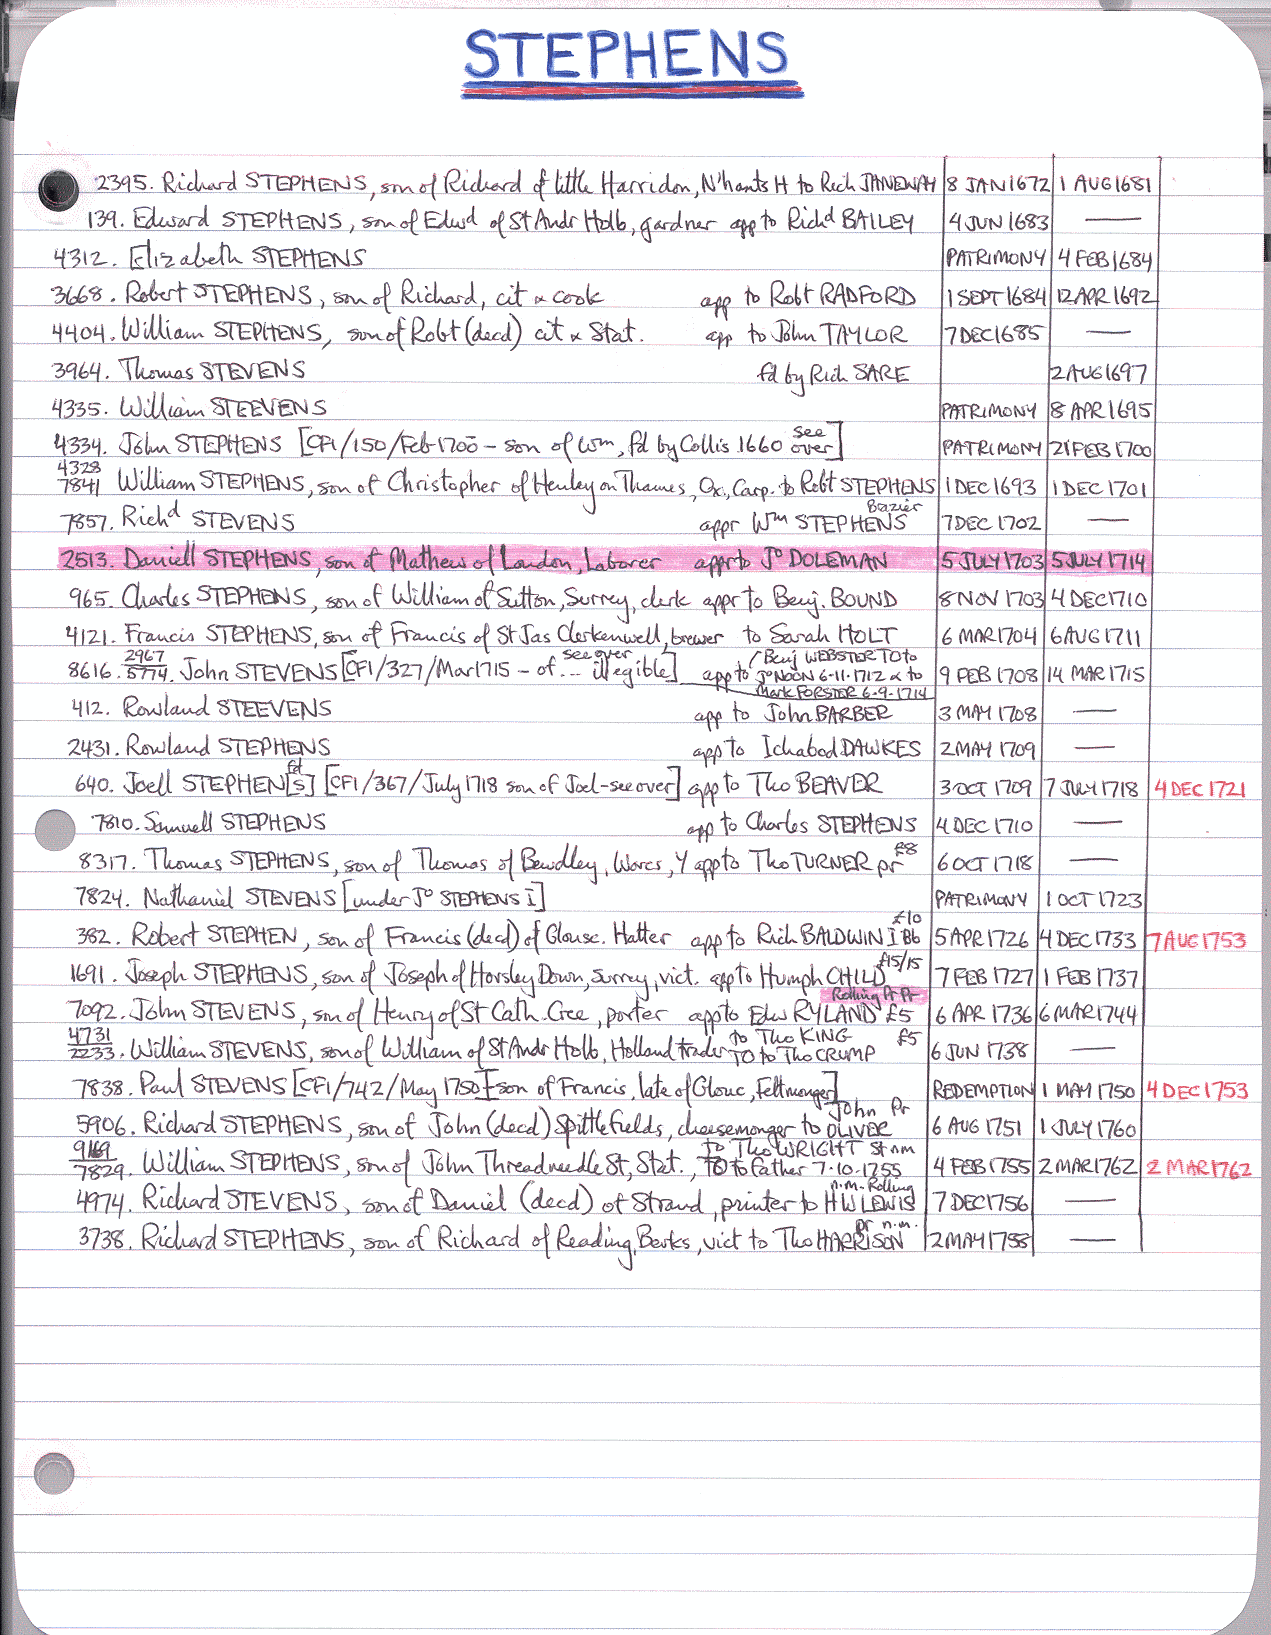 STEPHENS
2395. Richard STEPHENS, son of Richard of little Harridon, N'hants H to Rich JANEWAY 8 JAN 1672 1 AUG 1681
139. Edward STEPHENS, son of Edwd of St Andr Holb, gardner app to Richd BAILEY 4 JUN 1683 —
4312. Elizabeth STEPHENS PATRIMONY 4 FEB 1684
3668. Robert STEPHENS, son of Richard, cit & cook app to Robt RADFORD 1 SEPT 1684 12 APR 1692
4404. William STEPHENS, son of Robt (decd) cit & Stat. app to John TAYLOR 7 DEC 1685 —
3964. Thomas STEVENS fd by Rich SARE 2 AUG 1697
4335. William STEEVENS PATRIMONY 8 APR 1695
4334. John STEPHENS [CF1/150/Feb 1700 – son of Wm, fd by Collis 1660 see over] PATRIMONY 21 FEB 1700
4328
7841 William STEPHENS, son of Christopher of Henley on Thames, Ox, Carp. to Robt STEPHENS 1 DEC 1693 1 DEC 1701
7857. Richd STEVENS appr Wm STEPHENS Brazier 7 DEC 1702 —
2513. Daniell STEPHENS, son of Mathew of London, Laborer appr to Jo DOLEMAN 5 JULY 1703 5 JULY 1714
965. Charles STEPHENS, son of William of Sutton, Surrey, clerk appr to Benj. BOUND 8 NOV 1703 4 DEC 1710
4121. Francis STEPHENS, son of Francis of St Jas Clerkenwell, brewer to Sarah HOLT 6 MAR 1704 6 AUG 1711
8616. 2967/5774. John STEVENS [CF1/327/Mar 1715 – of ... illegible] see over app to (Benj WEBSTER TO to Jo NOON 6-11-1712 & to Mark FORSTER 6-9-1714 9 FEB 1708 14 MAR 1715
412. Rowland STEEVENS app to John BARBER 3 MAY 1708 —
2431. Rowland STEPHENS app to Ichabod DAWKES 2 MAY 1709 —
640. Joell STEPHEN[s] fd [CF1/367/July 1718 son of Joel – see over] app to Tho BEAVER 3 OCT 1709 7 JULY 1718 4 DEC 1721
7810. Samuell STEPHENS app to Charles STEPHENS 4 DEC 1710 —
8317. Thomas STEPHENS, son of Thomas of Bewdley, Worcs, Y app to Tho TURNER pr £8 6 OCT 1718 —
7824. Nathaniel STEVENS [under Jo STEPHENS I] PATRIMONY 1 OCT 1723
382. Robert STEPHEN, son of Francis (decd) of Glouse. Hatter app to Rich BALDWIN I Bb £10 5 APR 1726 4 DEC 1733 7 AUG 1753
1691. Joseph STEPHENS, son of Joseph of Horsley Down, Surrey, vict. app to Humph CHILD £15/15 7 FEB 1727 1 FEB 1737
7092. John STEVENS, son of Henry of St Cath. Cree, porter app to Edw RYLAND Rolling Pr Pr £5 6 APR 1736 6 MAR 1744
4731
2233. William STEVENS, son of William of St Andr Holb, Holland trader to Tho KING £5 TO to Tho CRUMP 6 JUN 1738 —
7838. Paul STEVENS [CF1/742/May 1750 – son of Francis, late of Glouc, Feltmonger] REDEMPTION 1 MAY 1750 4 DEC 1753
5906. Richard STEPHENS, son of John (decd) Spittlefields, cheesemonger to John OLIVER Pr 6 AUG 1751 1 JULY 1760
9169
7829. William STEPHENS, son of John Threadneedle St, Stat., to Tho WRIGHT St nm TO to Father 7-10-1755 4 FEB 1755 2 MAR 1762 2 MAR 1762
4974. Richard STEVENS, son of Daniel (decd) of Strand, printer to HW LEWIS n.m. Rolling 7 DEC 1756 —
3738. Richard STEPHENS, son of Richard of Reading, Berks, vict to Tho HARRISON pr n.m. 2 MAY 1758 —